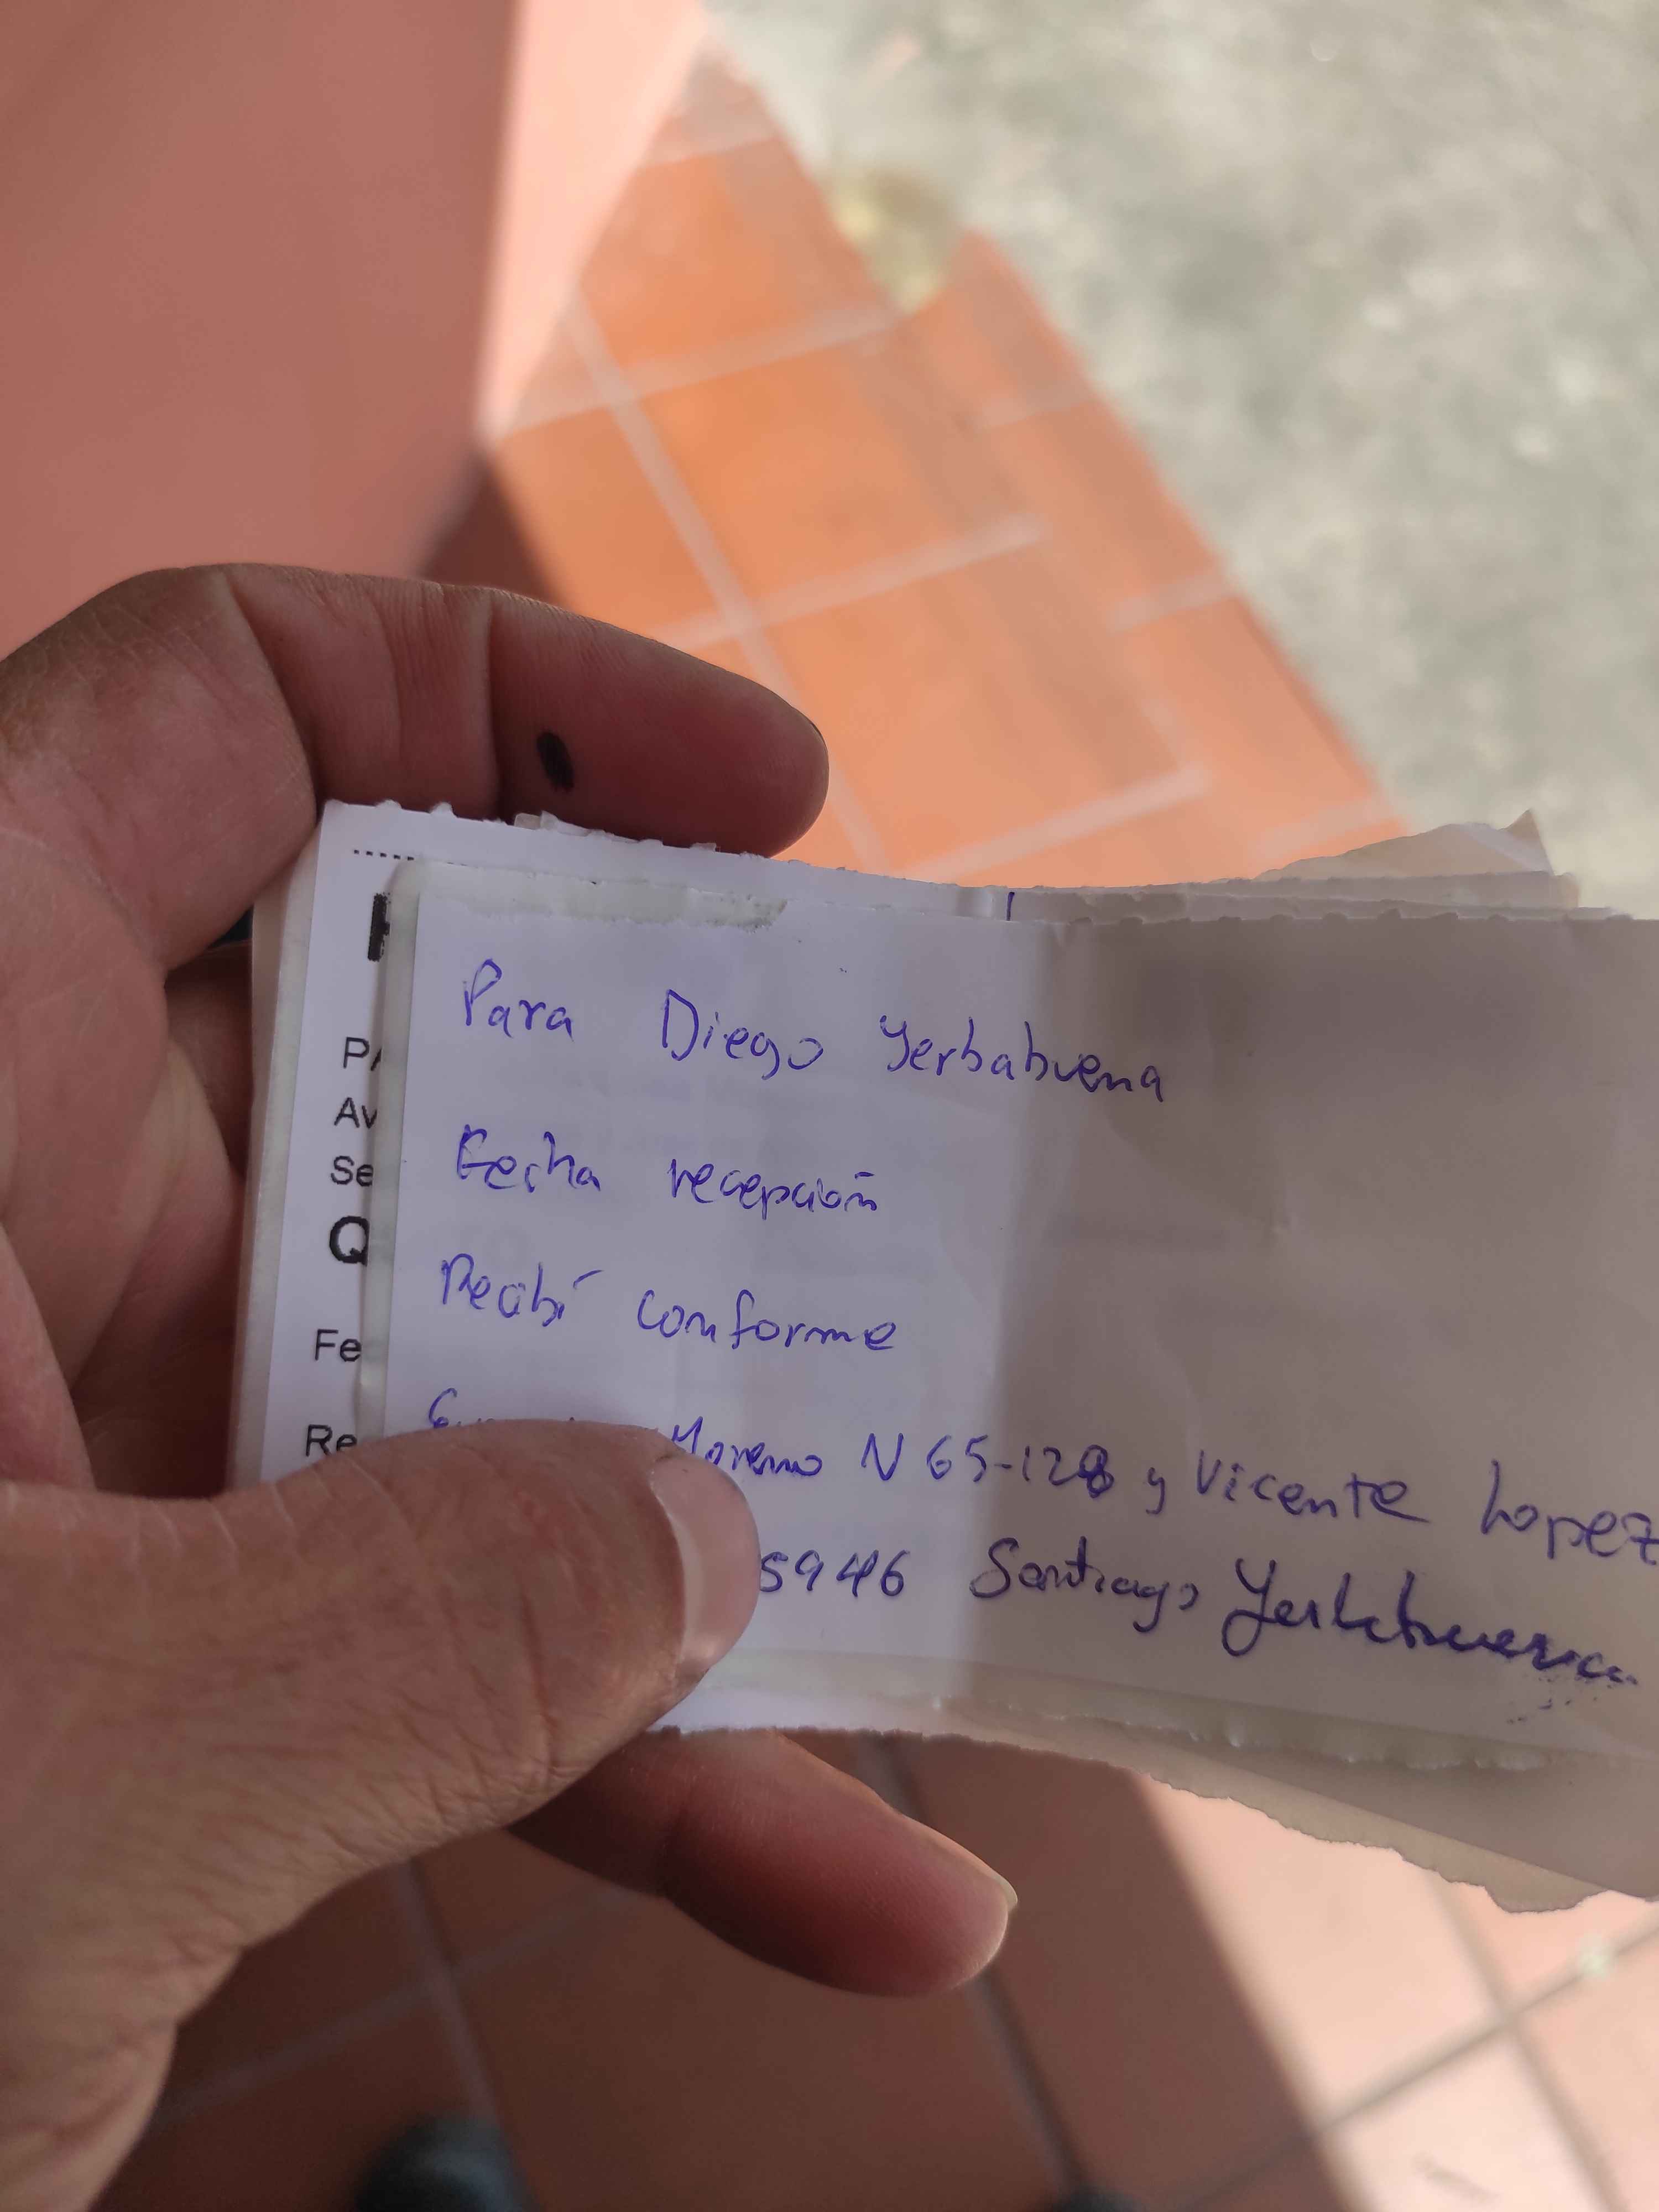 Para Diego Yerbabuena
Fecha recepción
Recibí conforme
Moreno N65-128 y Vicente Lopez
5946 Santiago Yerbabuena
P
Av
Se
Q
Fe
Re